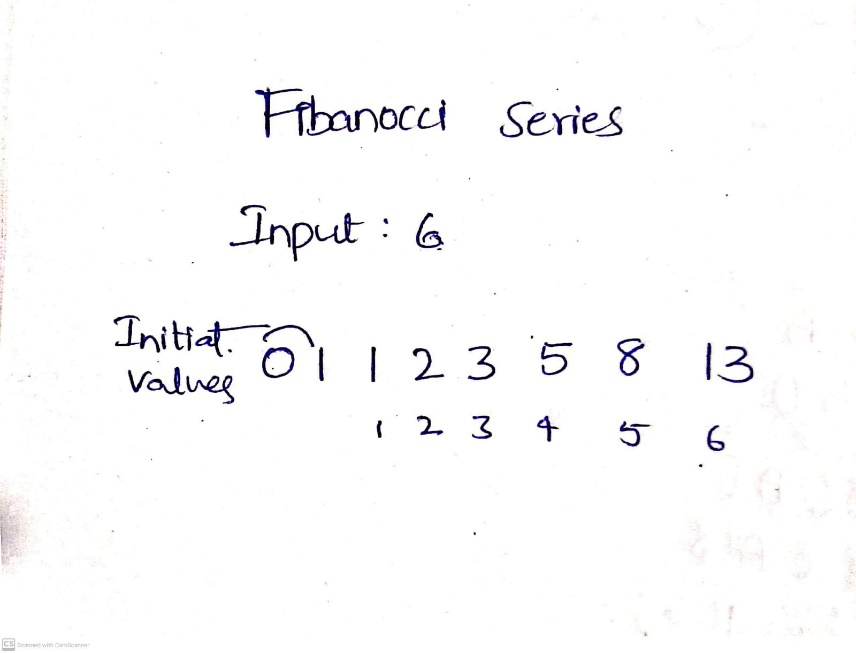 Fibanocci Series
Input : 6
Initial. 0 1 1 2 3 5 8 13
Values
1 2 3 4 5 6
CS Scanned with CamScanner